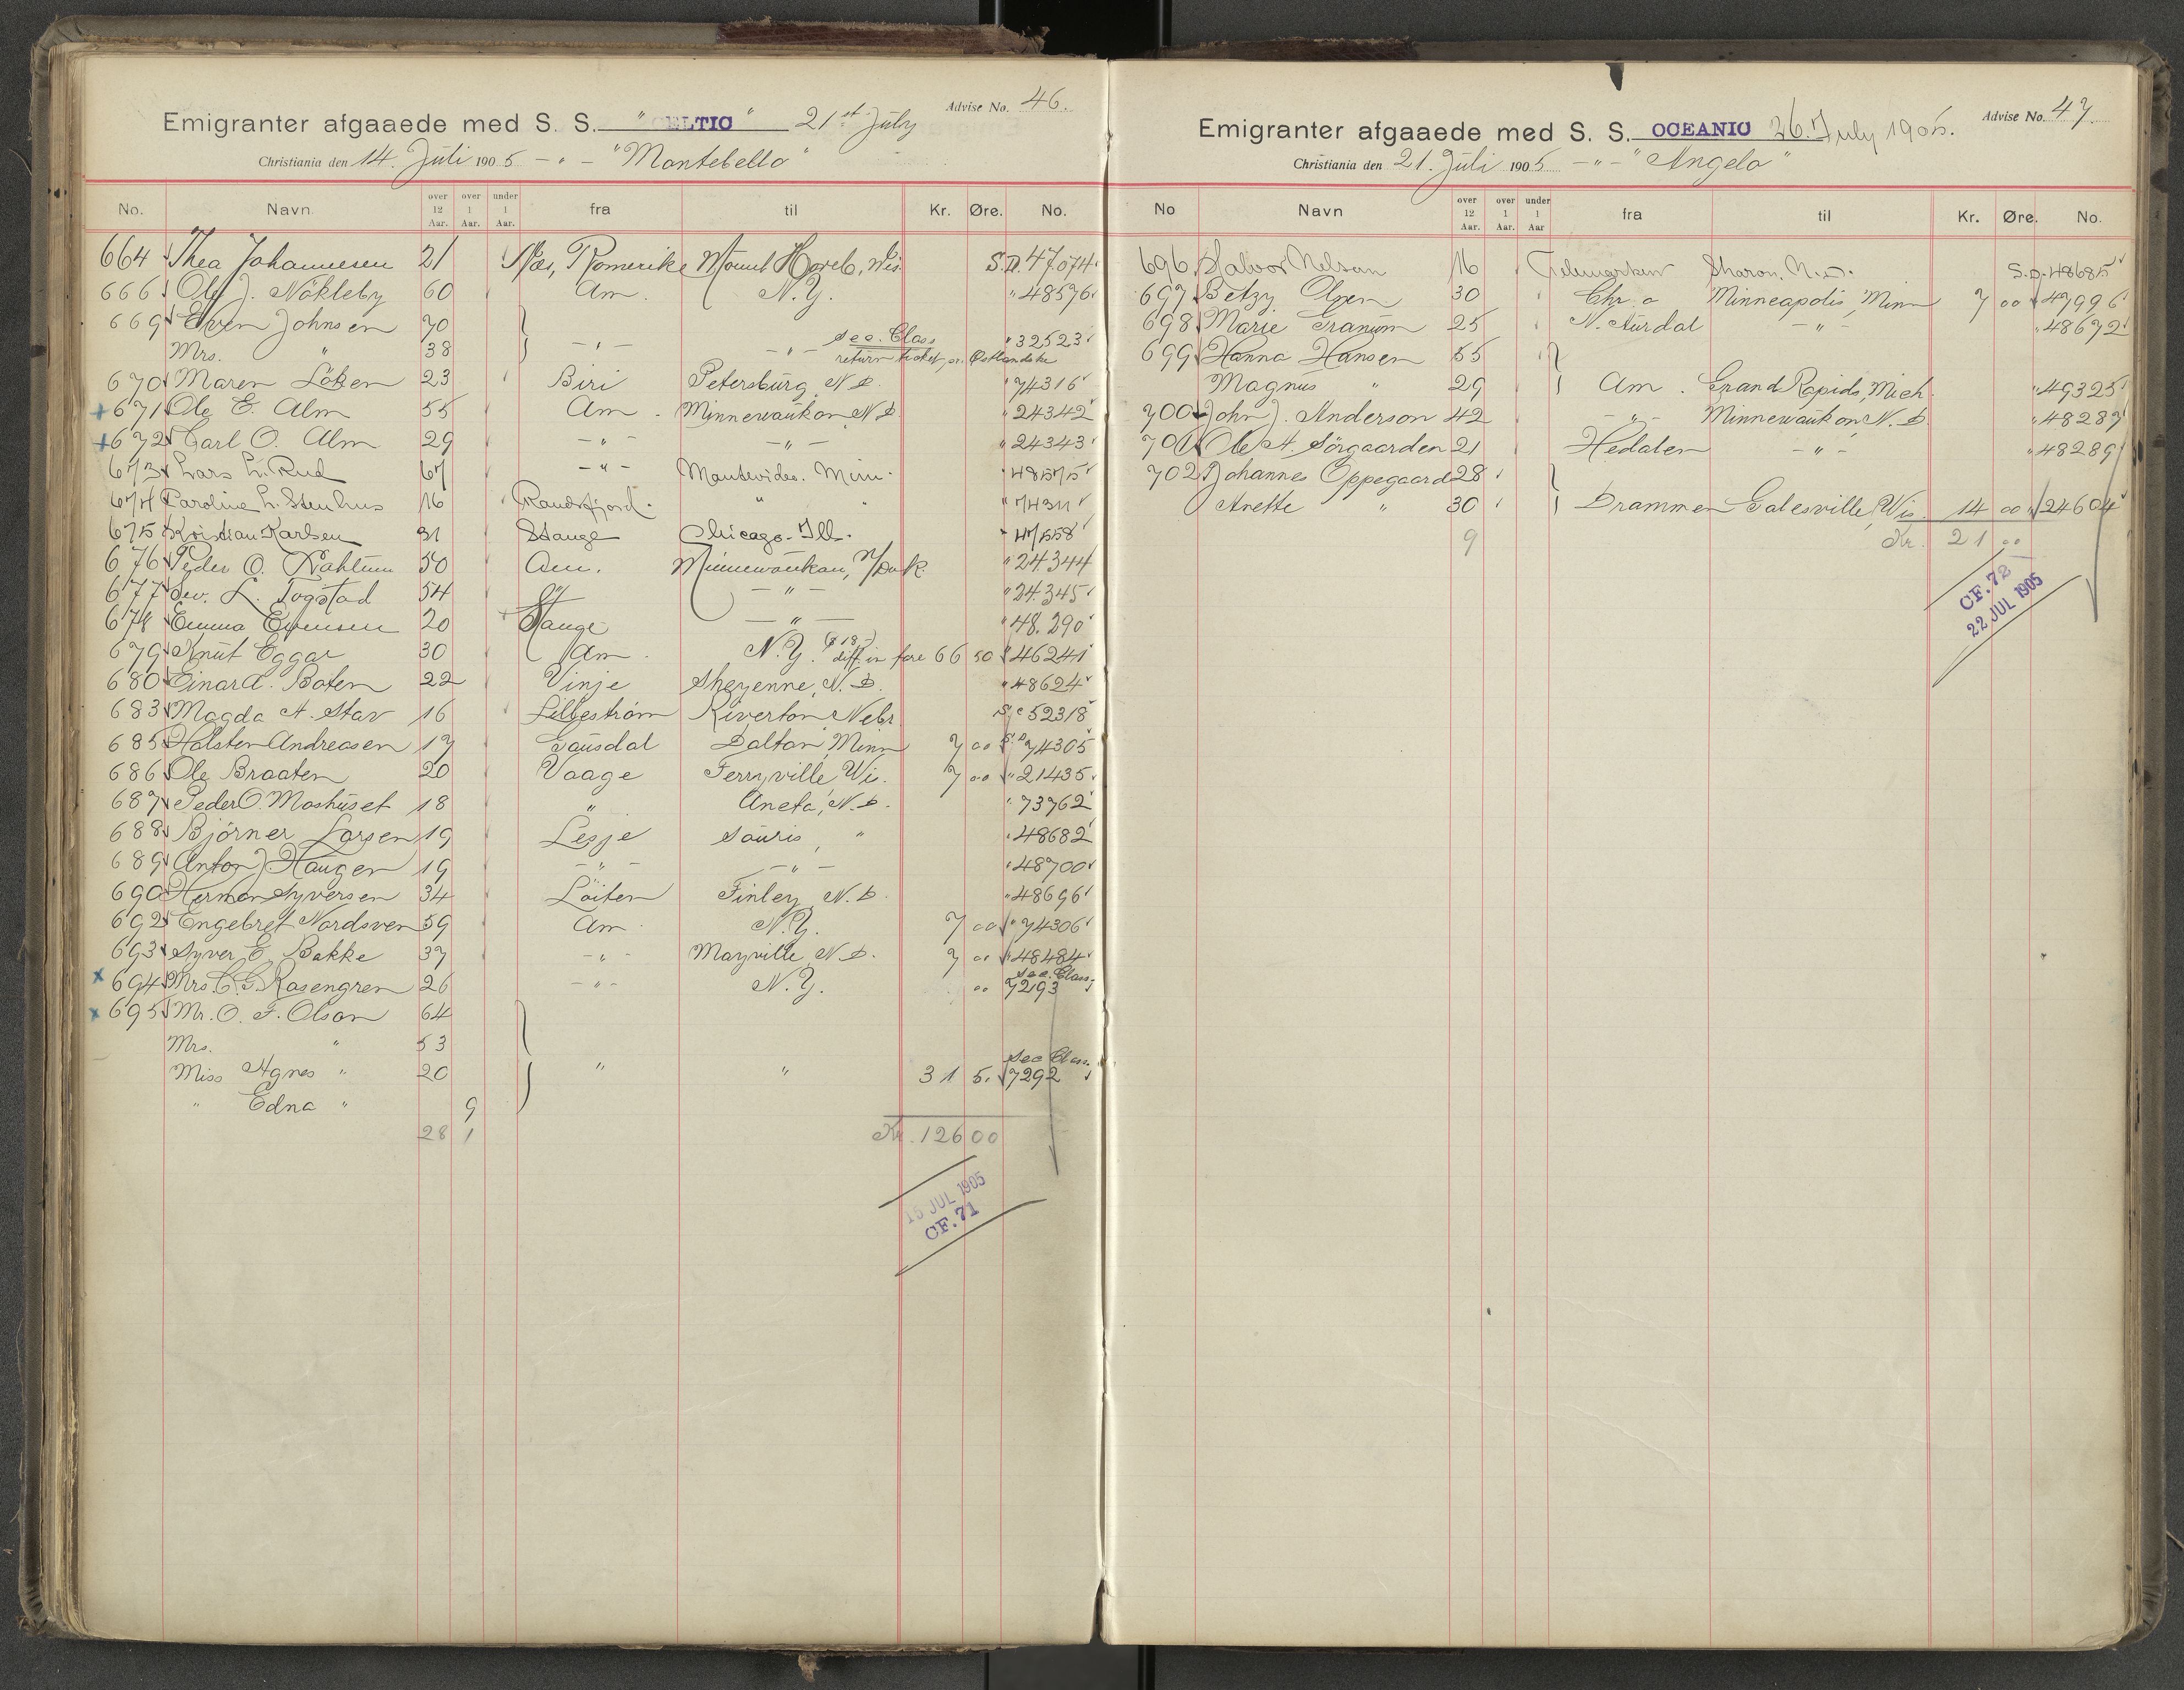 Advise No. 46.
Emigranter afgaaede med S. S. " CELTIC " 21st July
Christiania den 14. Juli 1905 - " - "Montebello"
No. Navn over 12 Aar. over 1 Aar. under 1 Aar. fra til Kr. Øre. No.
664 Thea Johannesen 21 Næs, Romerike Mount Horeb, Wis S.D. 47.074
666 Ole J. Nökleby 60 Am. N.Y. " 48576
669 Even Johnsen 70
Mrs. " 38 - " - - " - sec. Class " 32523
return ticket, pr. Østlandske
670 Maren Löken 23 Biri Petersburg, N.D. " 74316
+ 671 Ole E. Alm 55 Am. Minnewaukon, N.D " 24342
+ 672 Carl O. Alm 29 - " - - " - " 24343
673 Lars L. Rud 67 - " - Montevideo. Minn. " 48575
674 Caroline L. Stenhus 16 Randsfjord. " " " 74311
675 Kristian Karlsen 31 Stange Chicago. Ill. " 47558
676 Peder O. Dahlum 50 Am. Minnewaukan, N/Dak. " 24.344
677 Sev. L. Togstad 54 " - " - " 24.345
678 Emma Evensen 20 Stange - " - " 48.290
679 Knut Eggar 30 Am. N.Y. ($ 18.-) diff. in fare 66 50 " 46241
680 Einar A. Boten 22 Vinje Sheyenne, N.D. " 48624
683 Magda A. Stav 16 Lilleström Riverton, Nebr S/c 52318
685 Halsten Andreasen 17 Gausdal Dalton, Minn 7 00 S.D 74305
686 Ole Braaten 20 Vaage Ferryville, Wis. 7 00 " 21435
687 Peder O. Moshuset 18 " Aneta, N.D. " 73762
688 Björner Larsen 19 Lesje Souris, " " 48682
689 Anton J Haugen 19 - " - - " - " 48700
690 Herman Syversen 34 Löiten Finley, N.D. " 48696
692 Engebret Nordsven 59 Am. N.Y. 7 00 " 74306
693 Syver E. Bakke 37 - " - Mayville, N.D. 7 00 " 48484
x 694 Mrs. C. G. Rosengren 26 - " - N.Y. 00 Sec. Class. 7293
x 695 Mr. O. F. Olson 64
Mrs. " 53
Miss Agnes " 20 " " 31 5. Sec Class. 7292
" Edna " 9
28 1 Kr. 126 00
15 JUL 1905
CF. 71
Advise No. 47.
Emigranter afgaaede med S. S. OCEANIC 26. July 1905.
Christiania den 21. Juli 1905 - " - "Angelo"
No Navn over 12 Aar. over 1 Aar. under 1 Aar fra til Kr. Øre. No.
696 Halvor Nelson 16 Telemarken Sharon. N.D. S.D. 48685
697 Betzy Olsen 30 Chr.a Minneapolis, Minn 7 00 " 47996
698 Marie Granum 25 N. Aurdal - " - " 48672
699 Hanna Hansen 55
Magnus " 29 Am. Grand Rapids, Mich. " 49325
700 John J. Anderson 42 - " - Minnewaukon, N.D. " 48287
701 Ole A. Sörgaarden 21 Hedalen - " - " 48289
702 Johannes Oppegaard 28
Anette " 30 Drammen Galesville, Wis 14 00 " 24604
9 Kr. 21 00
CF. 72
22 JUL 1905